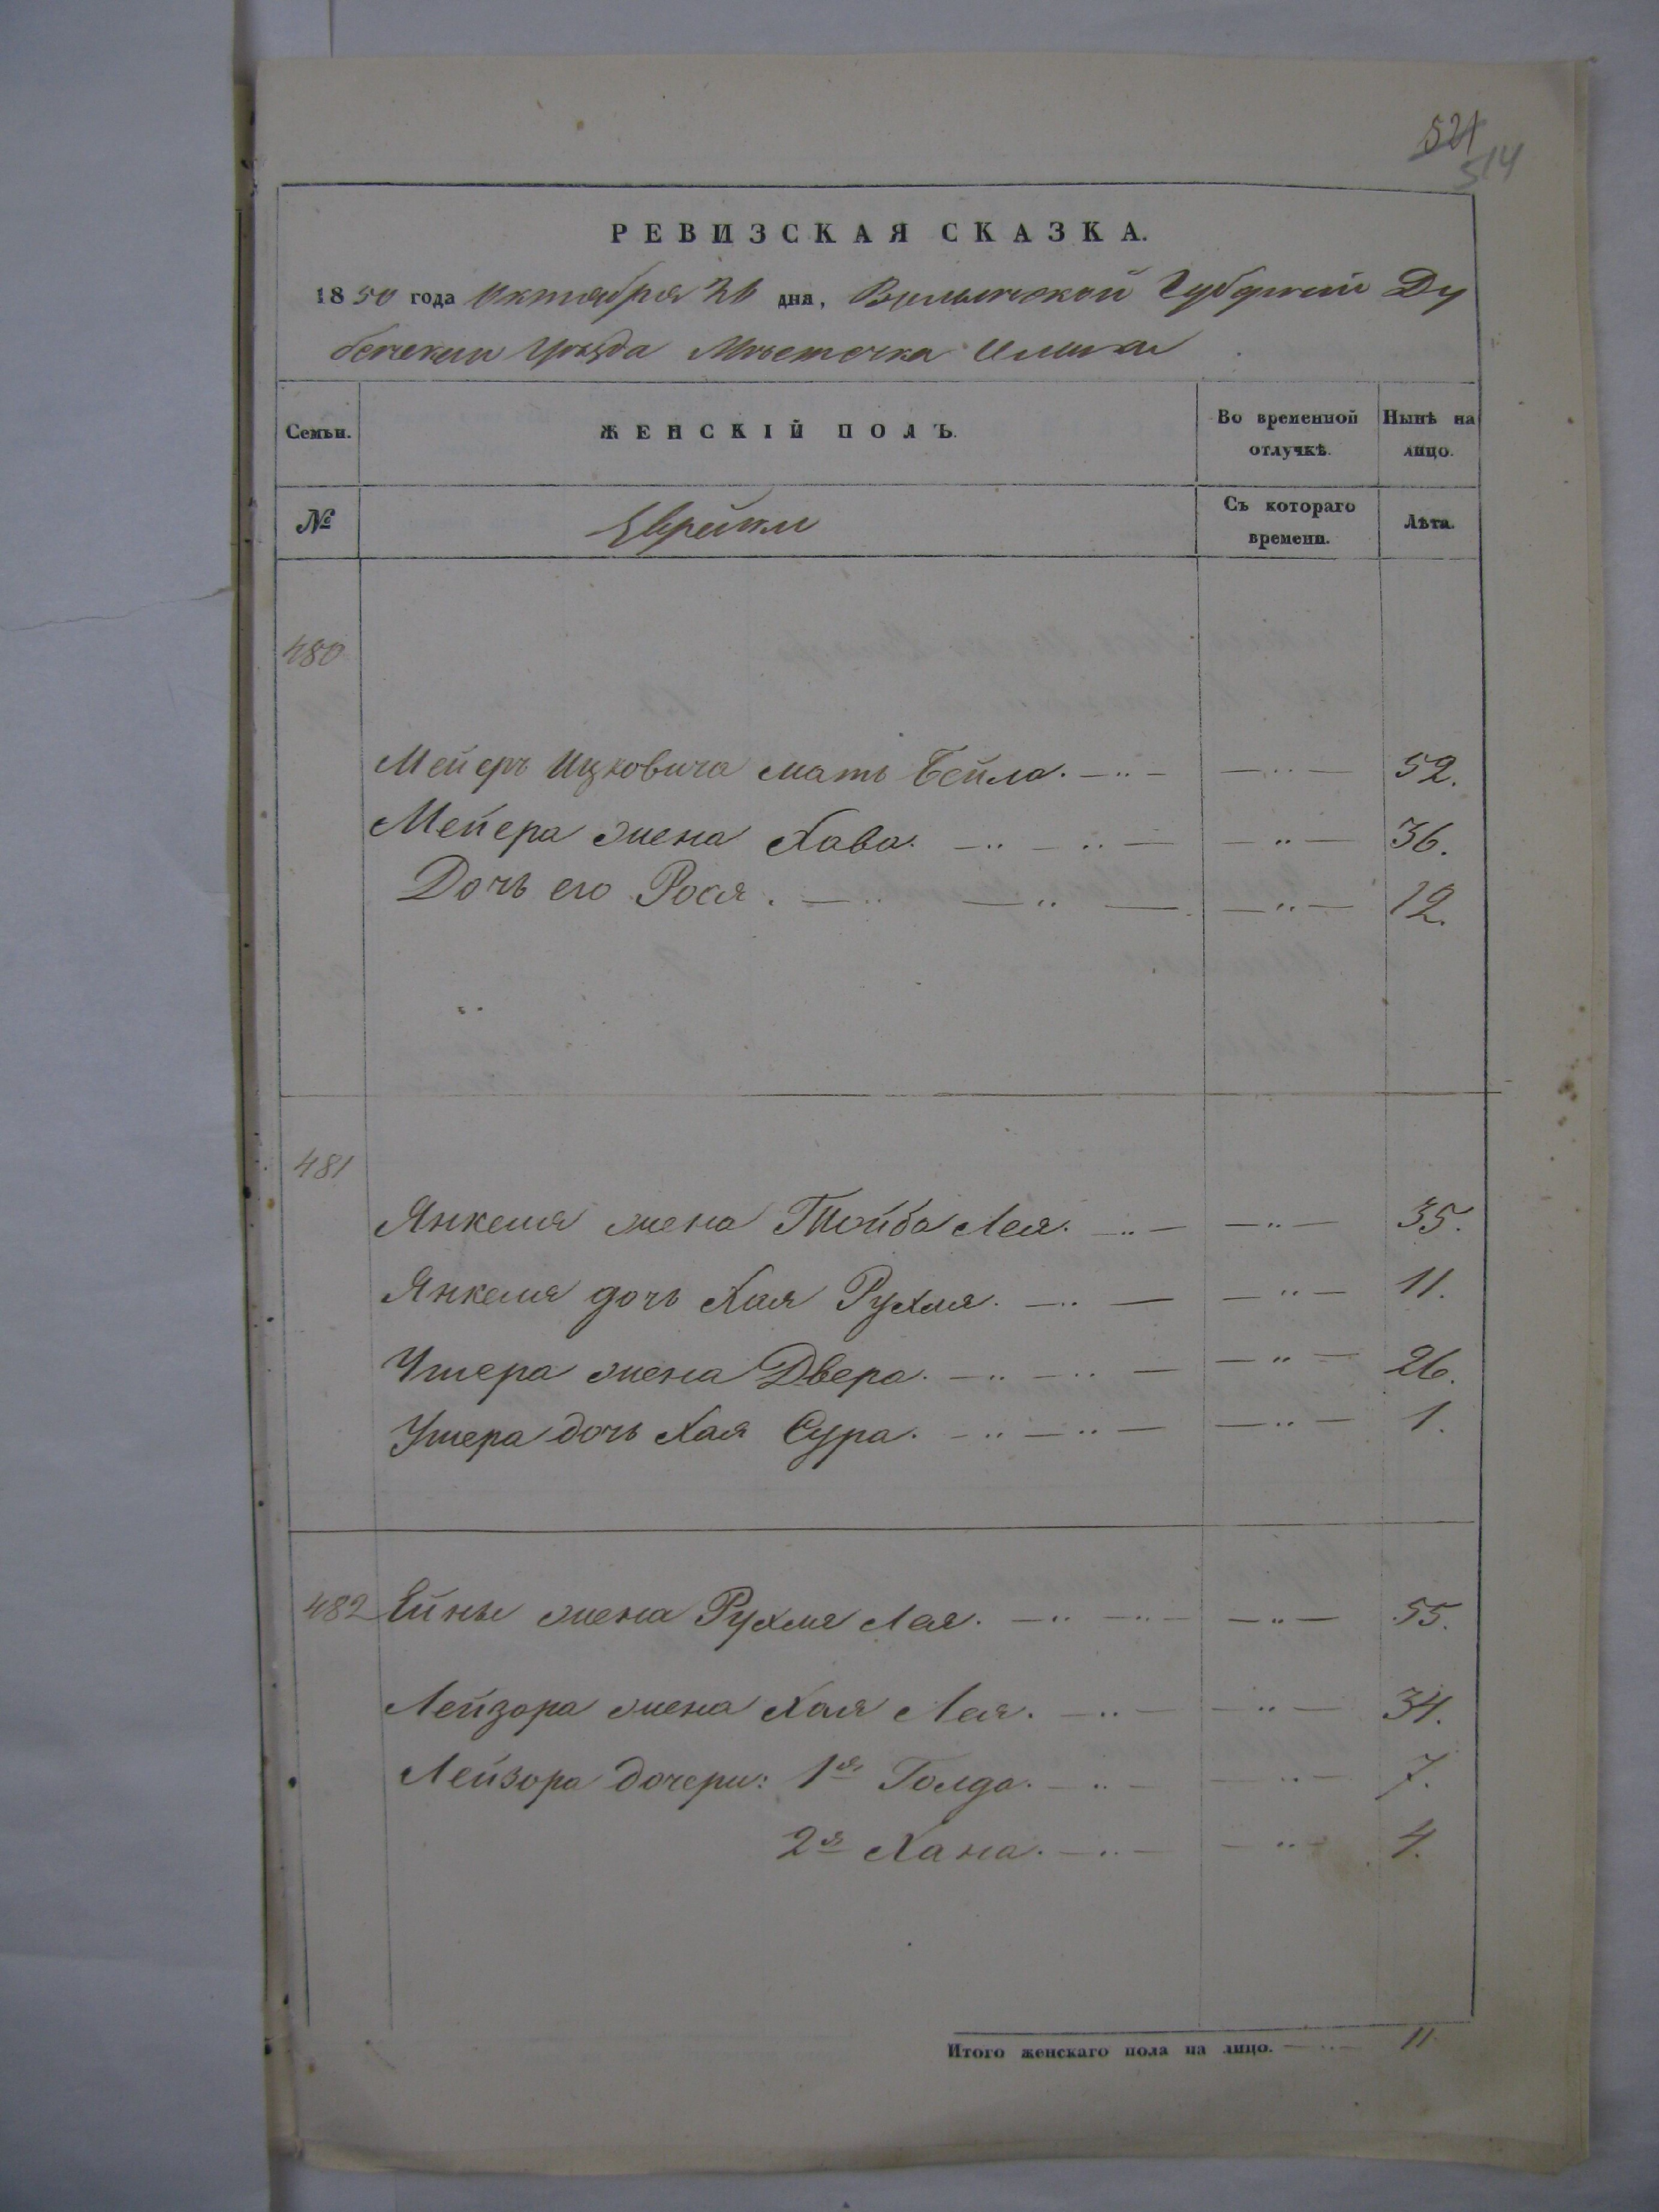 521
514
РЕВИЗСКАЯ СКАЗКА.
1850 года Октября 26 дня, Волынской Губерніи Ду
бенскаго Уѣзда Мѣстечка
Семьи. ЖЕНСКІЙ ПОЛЪ. Во временной отлучкѣ. Нынѣ на лицо.
№ Еврейки Съ котораго времени. Лѣта.
480
Мейеръ Ицковича мать Бейла. 52.
Мейера жена Хава. 36.
Дочь его Рося. 12.
481
Янкеля жена Тойба Лея. 35.
Янкеля дочь Хая Рухля. 11.
Ушера жена Двера. 26.
Ушера дочь Хая Сура. 1.
482 Ейны жена Рухля Лея. 55.
Лейзора жена Хая Лея. 34.
Лейзора дочери: 1я Голда. 7.
2я Хана. 4.
Итого женскаго пола на лицо. 11